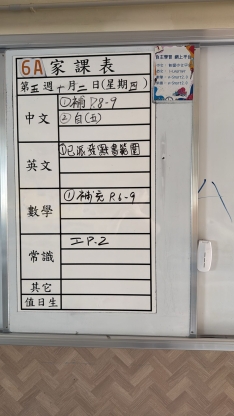 6A 家課表
第五週十月二日(星期四)
中文
①補 P.8-9
②自(五)
英文
①已派發默書範圍
數學
①補充 P.6-9
常識
工P.2
其它
值日生